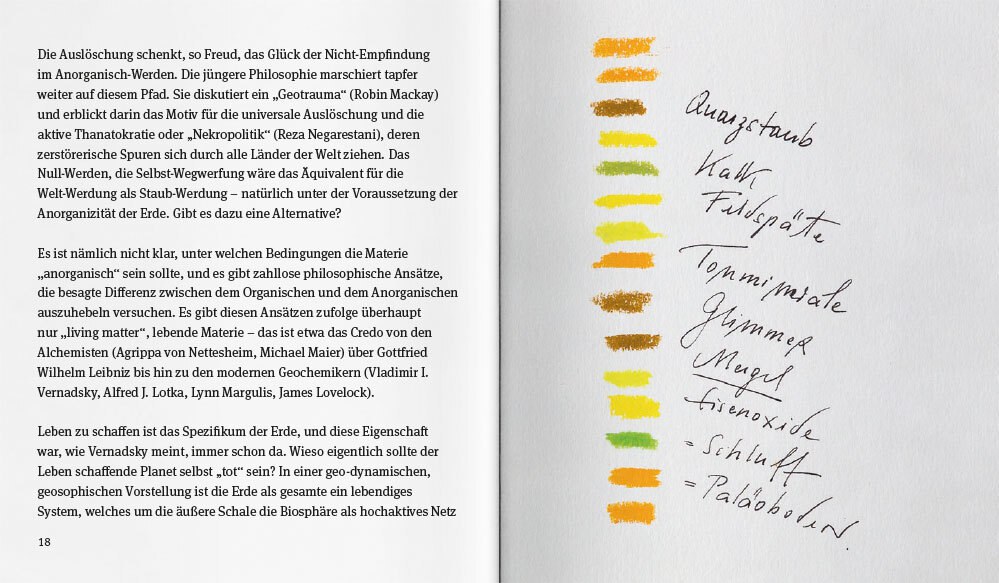 Die Auslöschung schenkt, so Freud, das Glück der Nicht-Empfindung
im Anorganisch-Werden. Die jüngere Philosophie marschiert tapfer
weiter auf diesem Pfad. Sie diskutiert ein „Geotrauma“ (Robin Mackay)
und erblickt darin das Motiv für die universale Auslöschung und die
aktive Thanatokratie oder „Nekropolitik“ (Reza Negarestani), deren
zerstörerische Spuren sich durch alle Länder der Welt ziehen. Das
Null-Werden, die Selbst-Wegwerfung wäre das Äquivalent für die
Welt-Werdung als Staub-Werdung – natürlich unter der Voraussetzung der
Anorganizität der Erde. Gibt es dazu eine Alternative?
Es ist nämlich nicht klar, unter welchen Bedingungen die Materie
„anorganisch“ sein sollte, und es gibt zahllose philosophische Ansätze,
die besagte Differenz zwischen dem Organischen und dem Anorganischen
auszuhebeln versuchen. Es gibt diesen Ansätzen zufolge überhaupt
nur „living matter“, lebende Materie – das ist etwa das Credo von den
Alchemisten (Agrippa von Nettesheim, Michael Maier) über Gottfried
Wilhelm Leibniz bis hin zu den modernen Geochemikern (Vladimir I.
Vernadsky, Alfred J. Lotka, Lynn Margulis, James Lovelock).
Leben zu schaffen ist das Spezifikum der Erde, und diese Eigenschaft
war, wie Vernadsky meint, immer schon da. Wieso eigentlich sollte der
Leben schaffende Planet selbst „tot“ sein? In einer geo-dynamischen,
geosophischen Vorstellung ist die Erde als gesamte ein lebendiges
System, welches um die äußere Schale die Biosphäre als hochaktives Netz
18
Quarzstaub
Kalk
Feldspäte
Tonminerale
Glimmer
Mergel
Eisenoxide
= Schluff
= Paläoboden.